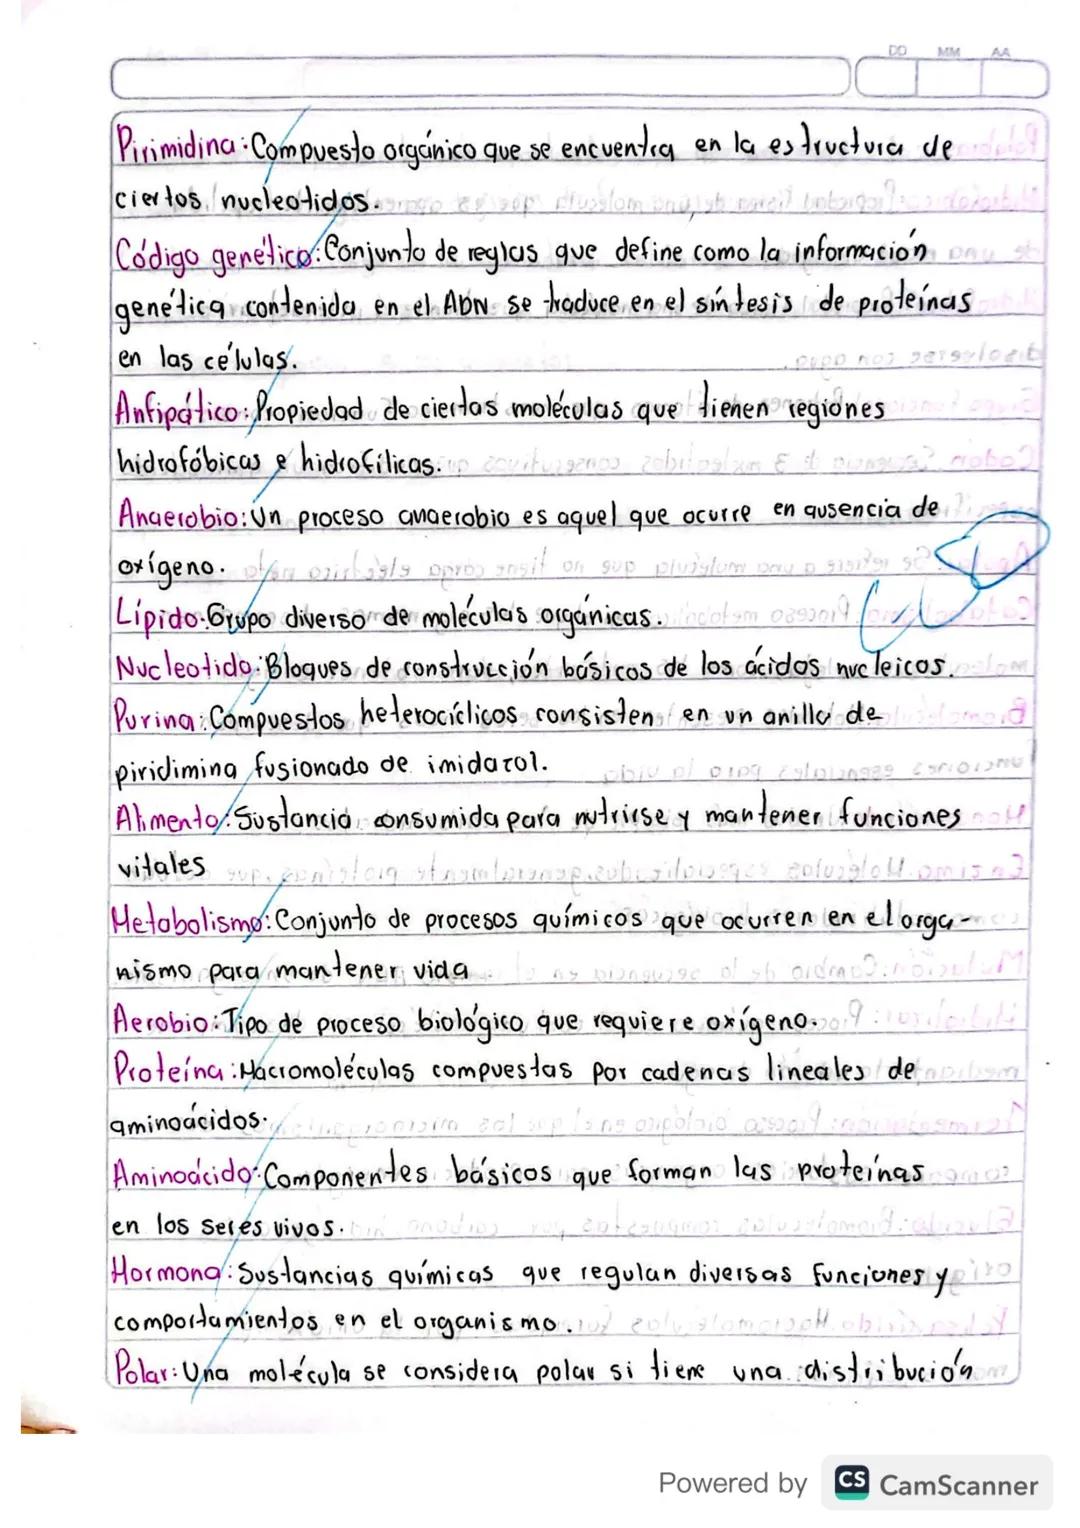 DD MM AA
Pirimidina: Compuesto orgánico que se encuentra en la estructura de
ciertos nucleotidos.
Código genético: Conjunto de reglas que define como la información
genética contenida en el ADN se traduce en el síntesis de proteínas
en las células.
Anfipático: Propiedad de ciertas moléculas que tienen regiones
hidrofóbicas e hidrofílicas.
Anaerobio: Un proceso anaerobio es aquel que ocurre en ausencia de
oxígeno.
Lípido: Grupo diverso de moléculas orgánicas.
Nucleotido: Bloques de construcción básicos de los ácidos nucleicos.
Purina: Compuestos heterocíclicos consisten en un anillo de
piridimina fusionado de imidazol.
Alimento: Sustancia consumida para nutrirse y mantener funciones
vitales
Metabolismo: Conjunto de procesos químicos que ocurren en el orga-
nismo para mantener vida
Aerobio: Tipo de proceso biológico que requiere oxígeno.
Proteína: Macromoléculas compuestas por cadenas lineales de
aminoácidos.
Aminoácido: Componentes básicos que forman las proteínas
en los seres vivos.
Hormona: Sustancias químicas que regulan diversas funciones y
comportamientos en el organismo.
Polar: Una molécula se considera polar si tiene una distribución
Powered by CS CamScanner